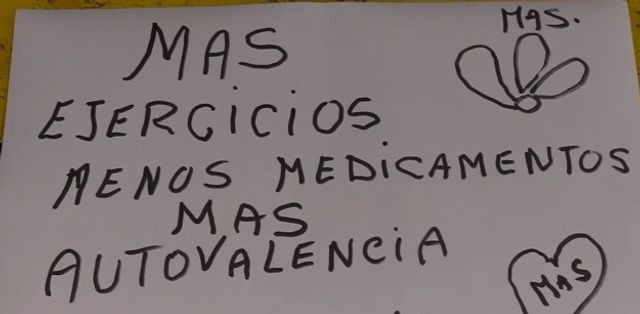 MAS.
MAS
EJERCICIOS
MENOS MEDICAMENTOS
MAS
AUTOVALENCIA
MAS